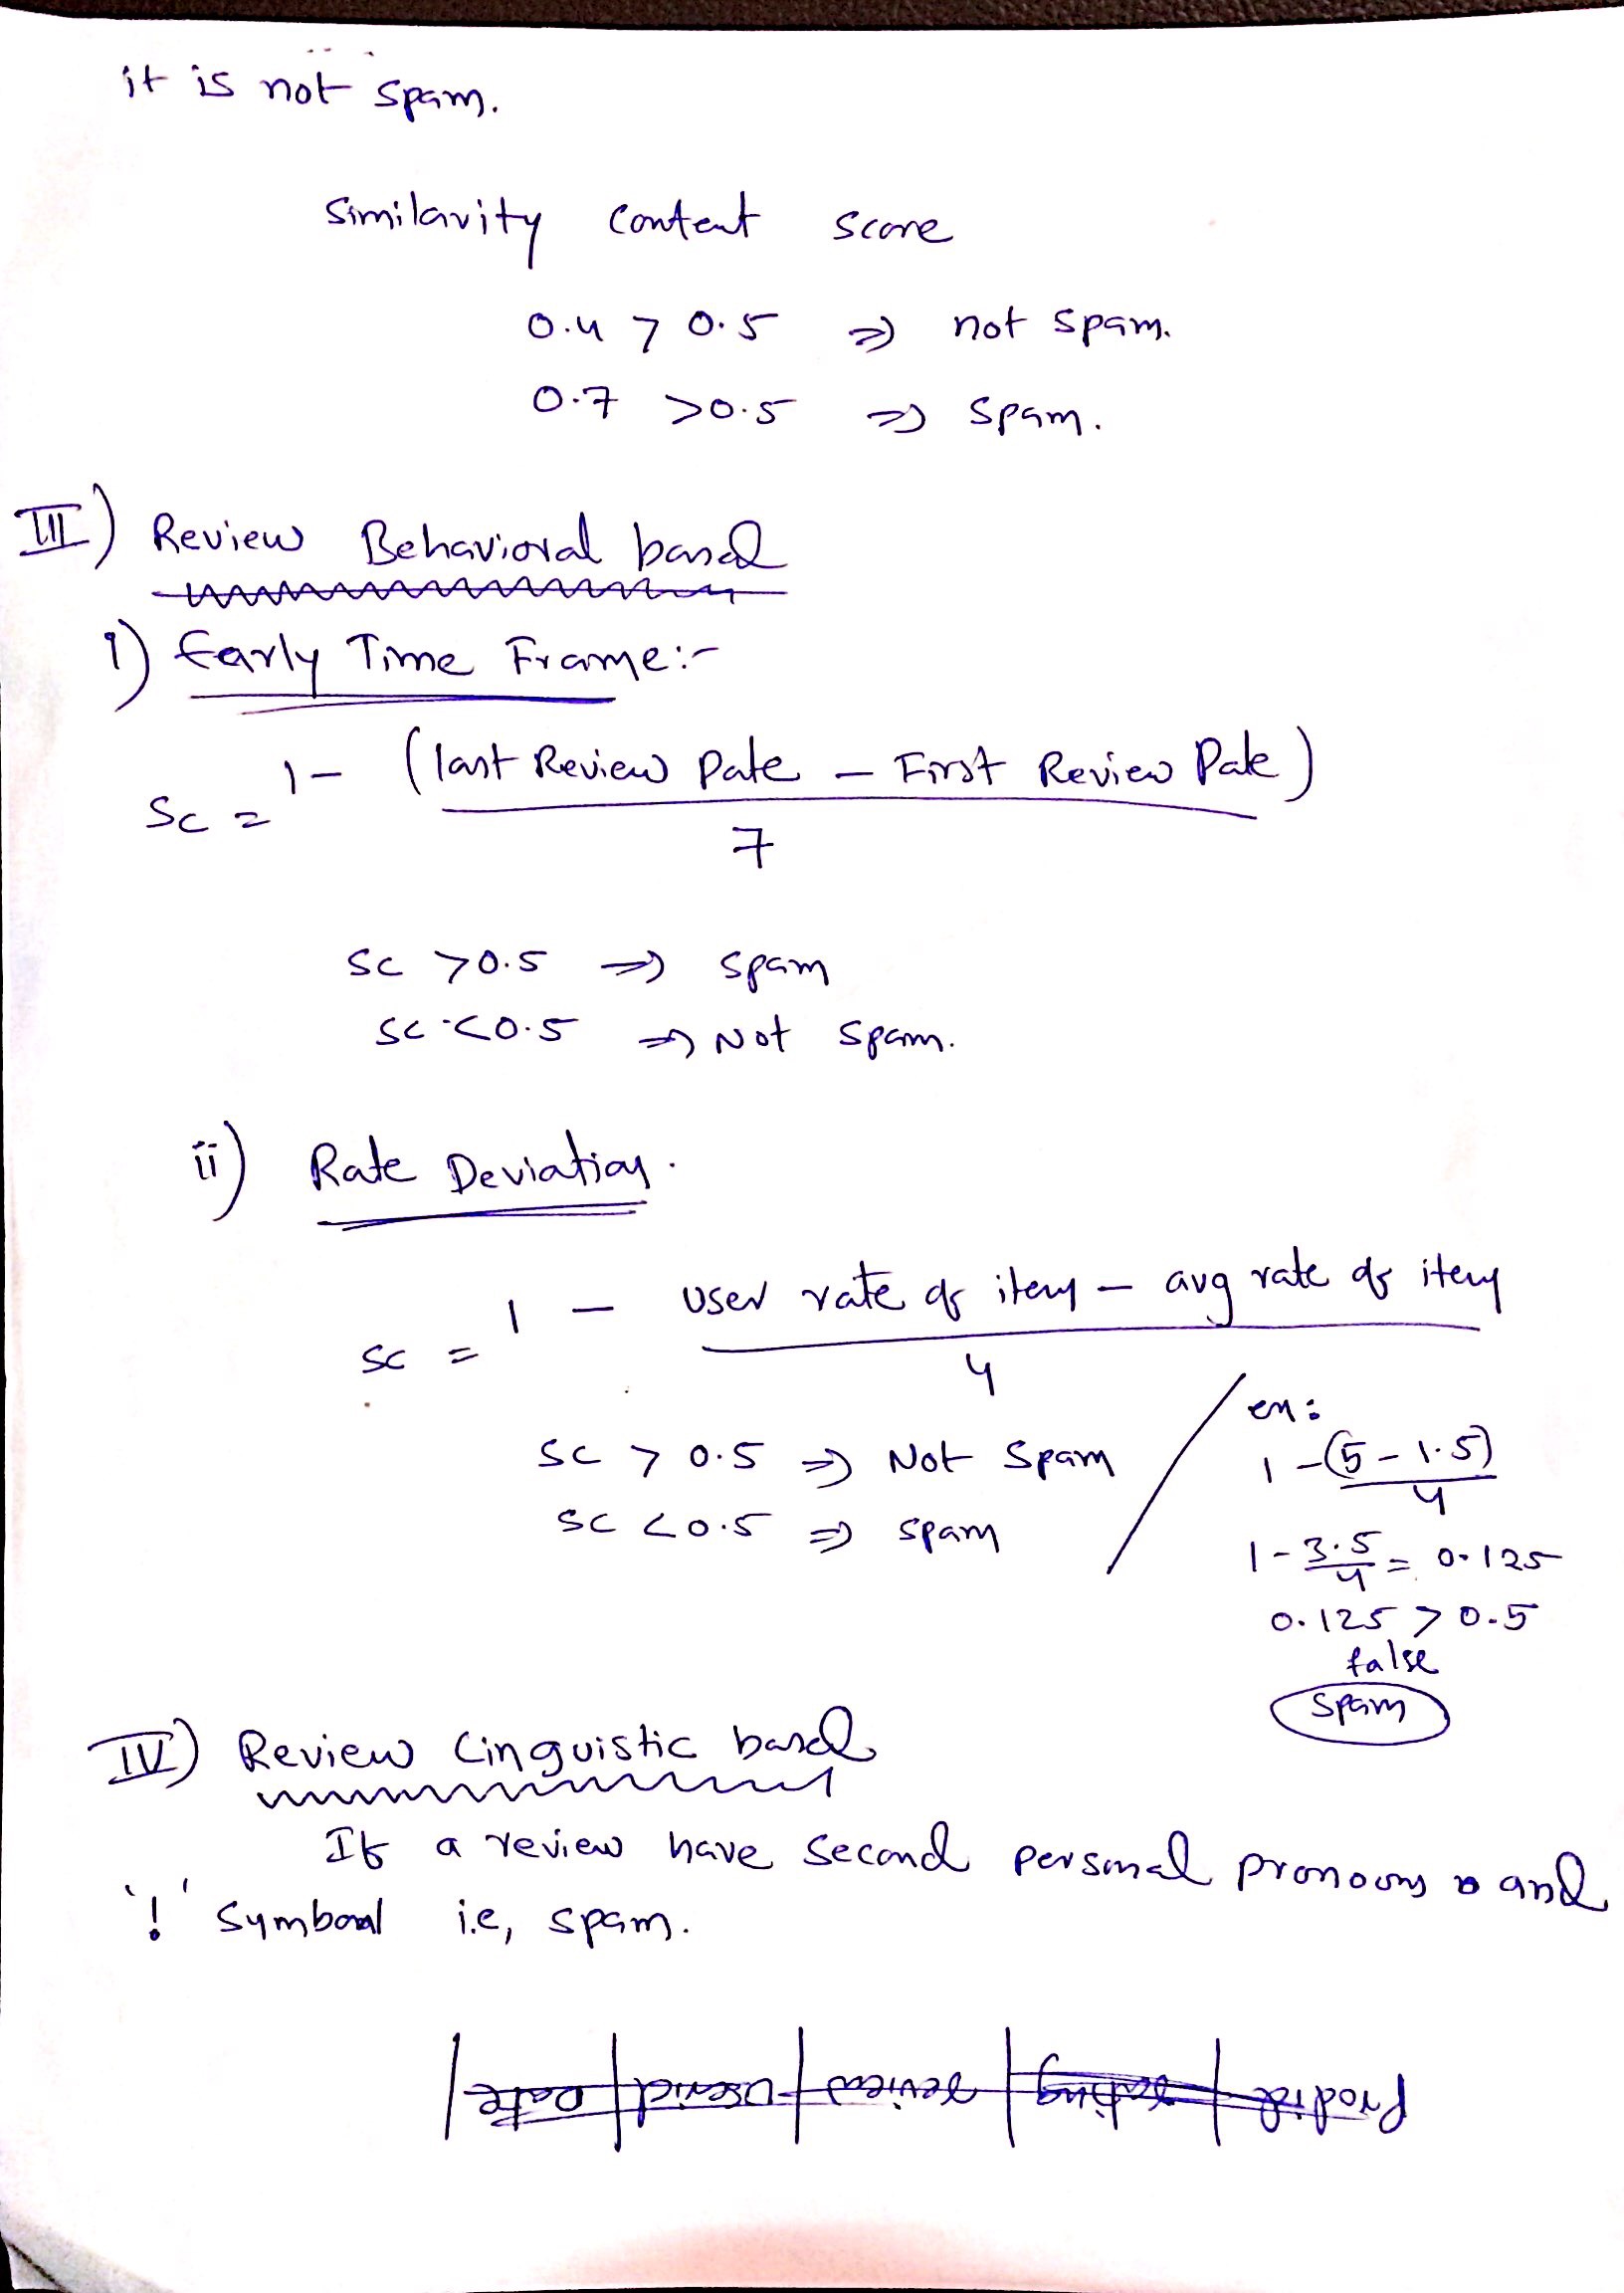 it is not spam.
Similarity Content Score
0.4 > 0.5 => not spam.
0.7 > 0.5 => Spam.
III) Review Behavioral based
i) Early Time Frame:-
Sc = 1 - (last Review Date - First Review Date)
7
Sc > 0.5 => spam
Sc < 0.5 => Not spam.
ii) Rate Deviation.
Sc = 1 - User rate of item - avg rate of item
4
Sc > 0.5 => Not Spam
Sc < 0.5 => spam
ex:
1 - (5 - 1.5)
4
1 - 3.5/4 = 0.125
0.125 > 0.5
false
Spam
IV) Review Linguistic based
If a review have Second personal pronouns and
'!' Symbol i.e, spam.
Prodid | rating | review | Userid | Date |